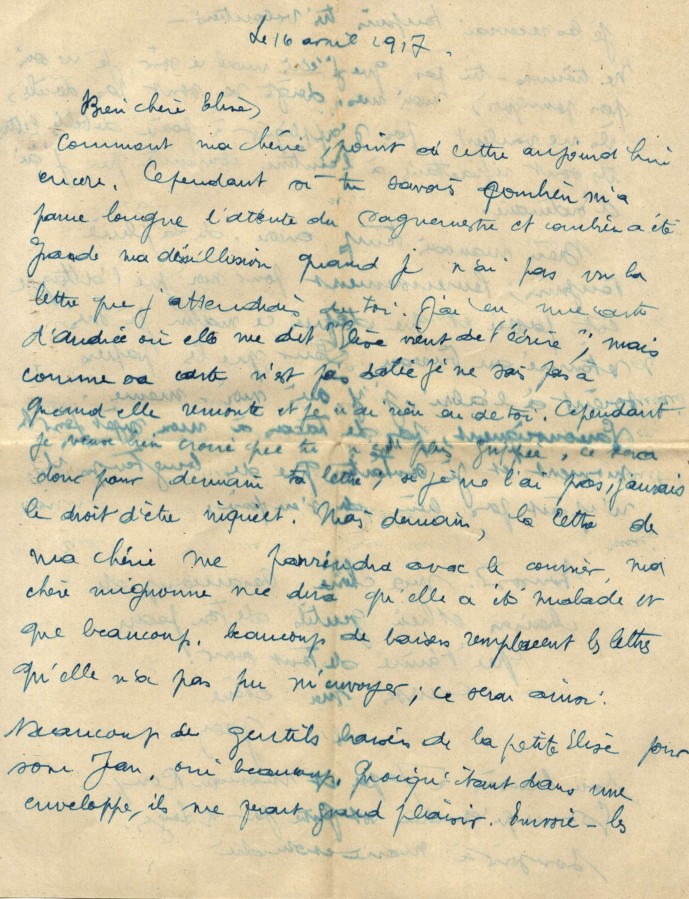 Le 16 avril 1917.
Bien chère Elise,
Comment ma chérie, point de lettre aujourd'hui
encore. Cependant si tu savais combien m'a
parue longue l'attente du vaguemestre et combien a été
grande ma désillusion quand je n'ai pas vu la
lettre que j'attendais de toi. J'ai eu une carte
d'Andrée où elle me dit "Elise vient de t'écrire", mais
comme sa carte n'est pas datée je ne sais pas à
quand elle remonte et je n'ai rien eu de toi. Cependant
je veux bien croire que tu pas, ce sera
donc pour demain ta lettre, si je ne l'ai pas, j'aurais
le droit d'être inquiet. Mais demain, la lettre de
ma chérie me parviendra avec le courrier, ma
chère mignonne me dira qu'elle a été malade et
que beaucoup, beaucoup de baisers remplacent les lettres
qu'elle n'a pas pu m'envoyer; ce sera ainsi!
Beaucoup de gentils baisers de la petite Elise pour
son Jean, oui beaucoup. Quoiqu'étant dans une
enveloppe, ils me feront grand plaisir. Envoie-les